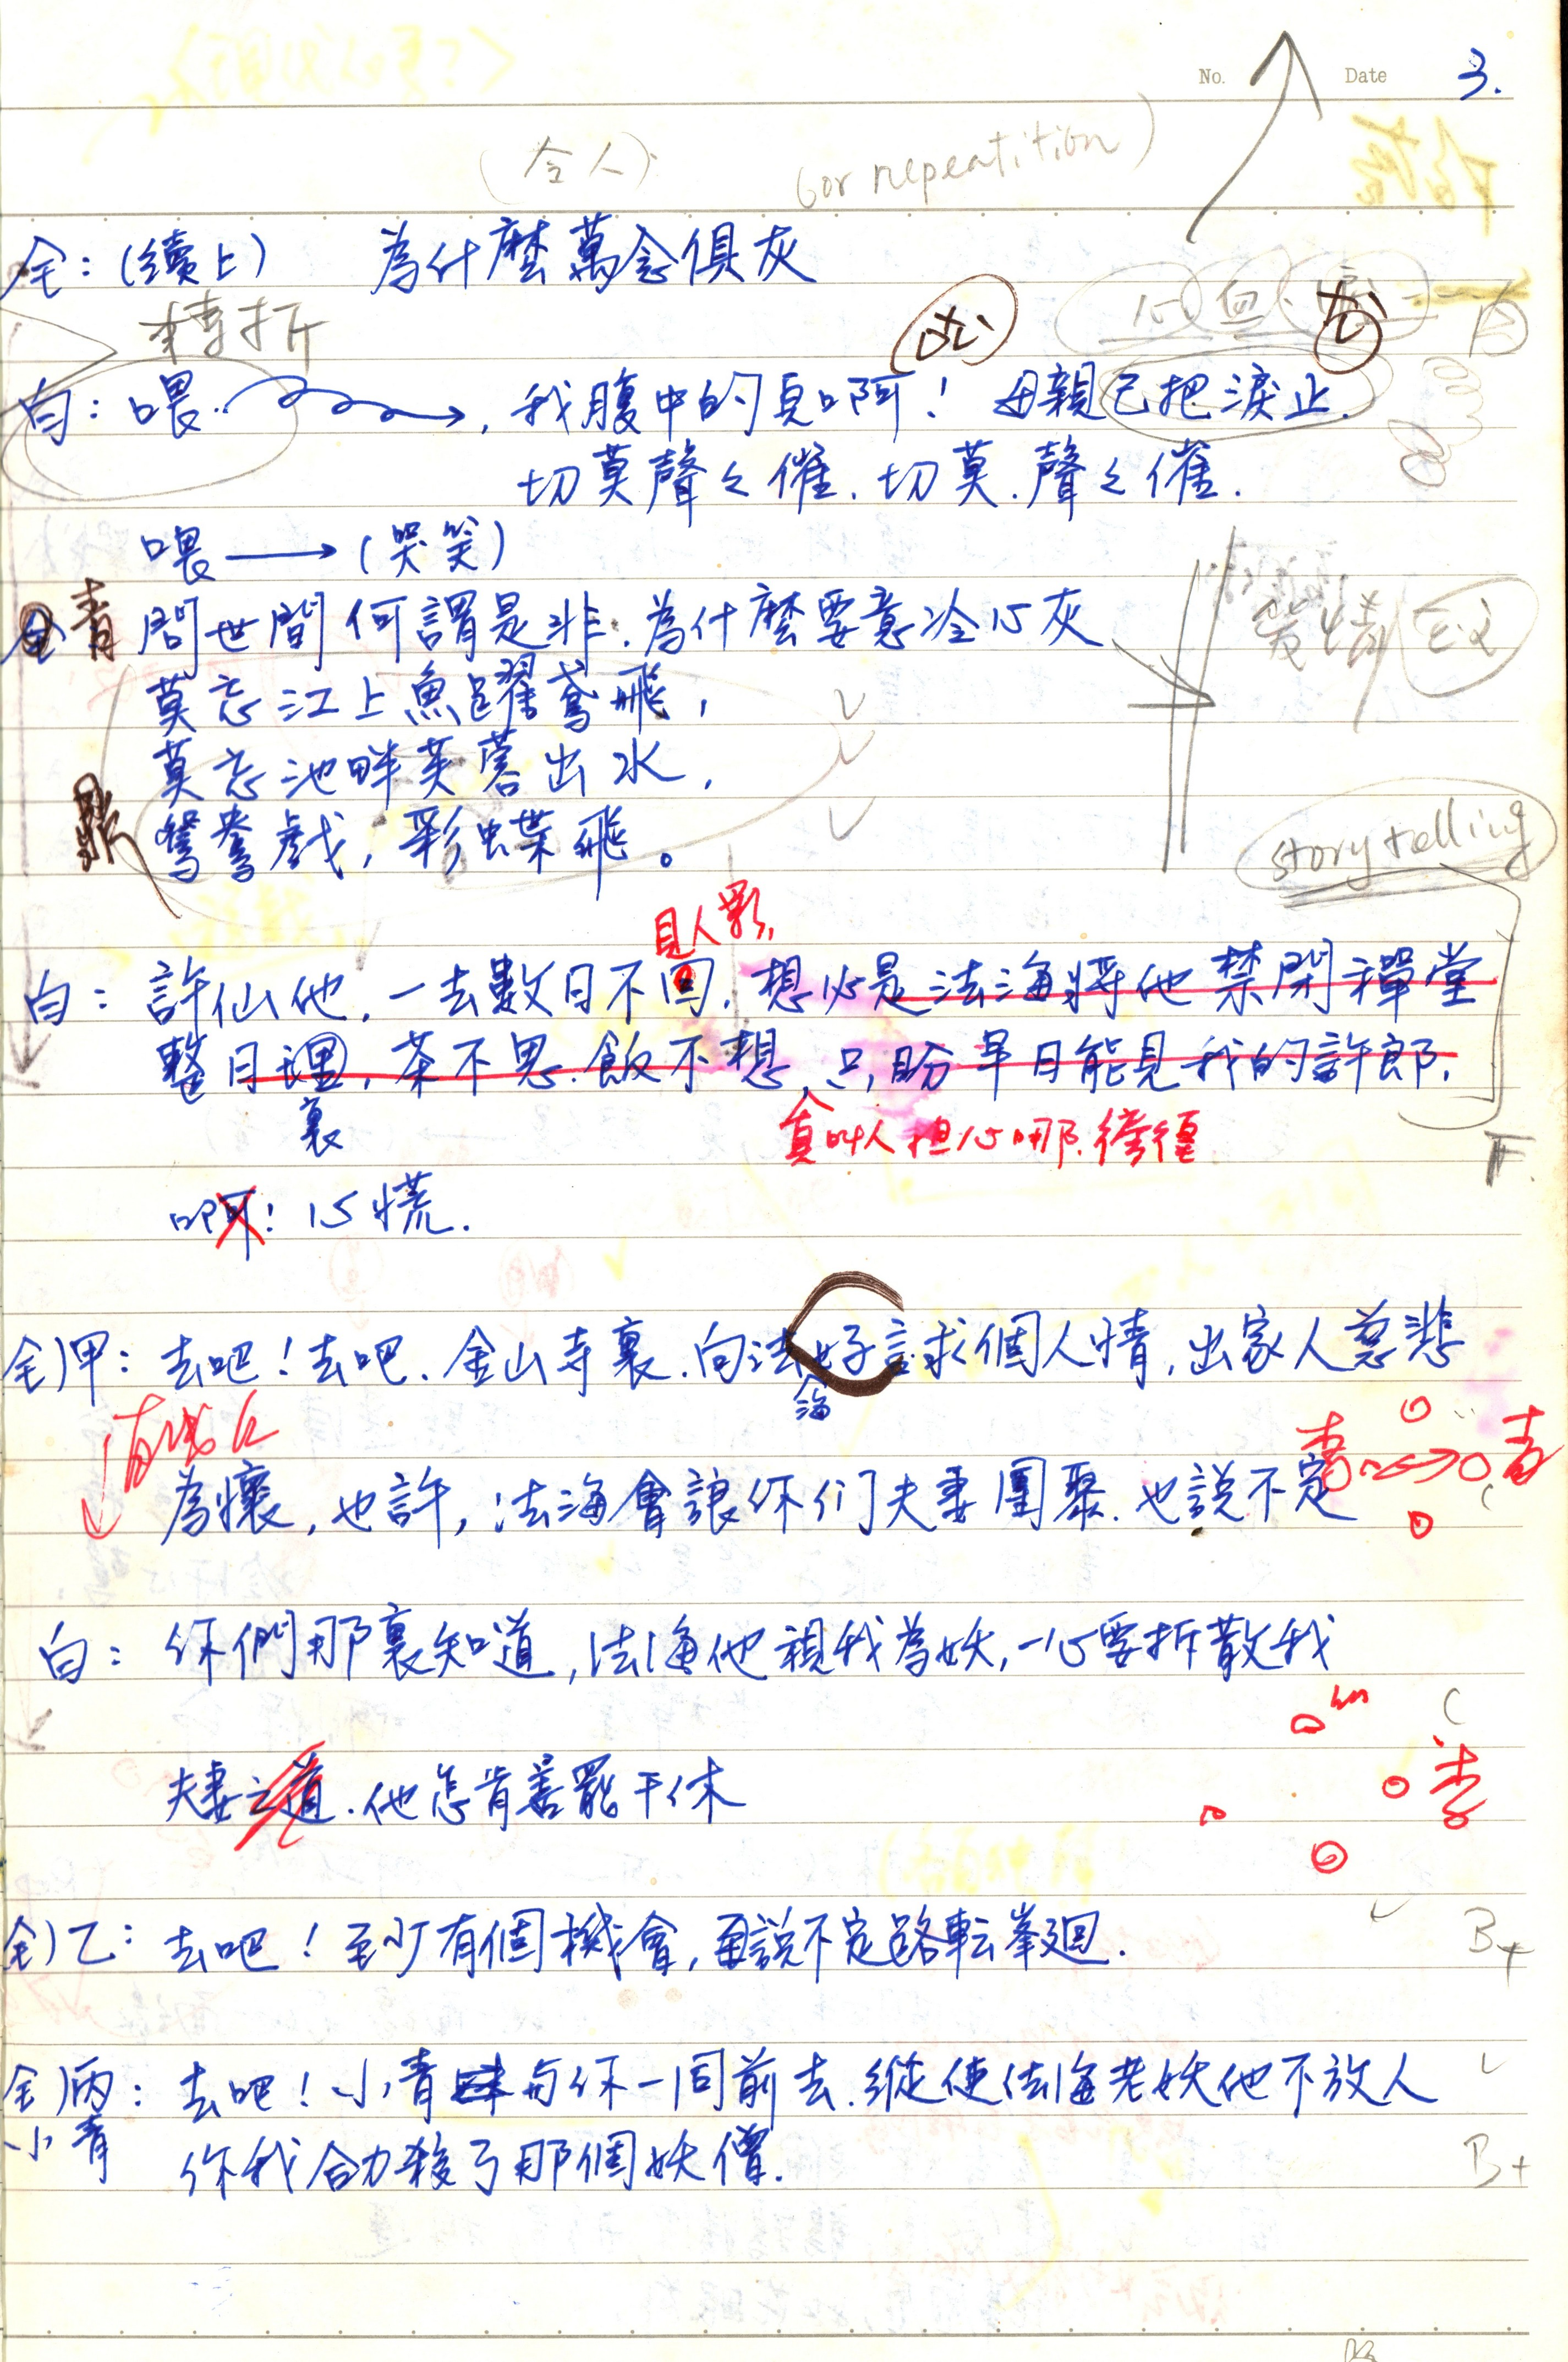 No. Date 3.
(令人) (or repeatition)
全：(續上) 為什麼萬念俱灰
轉折
心血
白：喂 我腹中的兒啊！母親已把淚止.
切莫聲々催. 切莫. 聲々催.
喂 (哭笑)
青 問世間何謂是非. 為什麼要意冷心灰
莫忘江上魚躍鳶飛，
莫忘池畔芙蓉出水，
鴛鴦戲，彩蝶飛。
storytelling
見人影，
白：許仙他，一去數日不回. 想必是法海將他禁閉禪堂
整日裡，茶不思. 飯不想，只盼早日能見我的許郎.
裏
真叫人担心哪.
F.
啊！心慌.
全)甲：去吧！去吧. 金山寺裏. 向法好言求個人情, 出家人慈悲
海
青 青
為懷, 也許, 法海會讓你们夫妻團聚. 也說不定
白：你們那裏知道, 法海他視我為妖, 一心要拆散我
夫妻之道. 他怎肯善罷干休
全)乙：去吧！至少有個機會, 再說不定路転峯廻. B+
全)丙：去吧！小青 与你一同前去. 縱使法海老妖他不放人
小青 你我合力殺了那個妖僧. B+